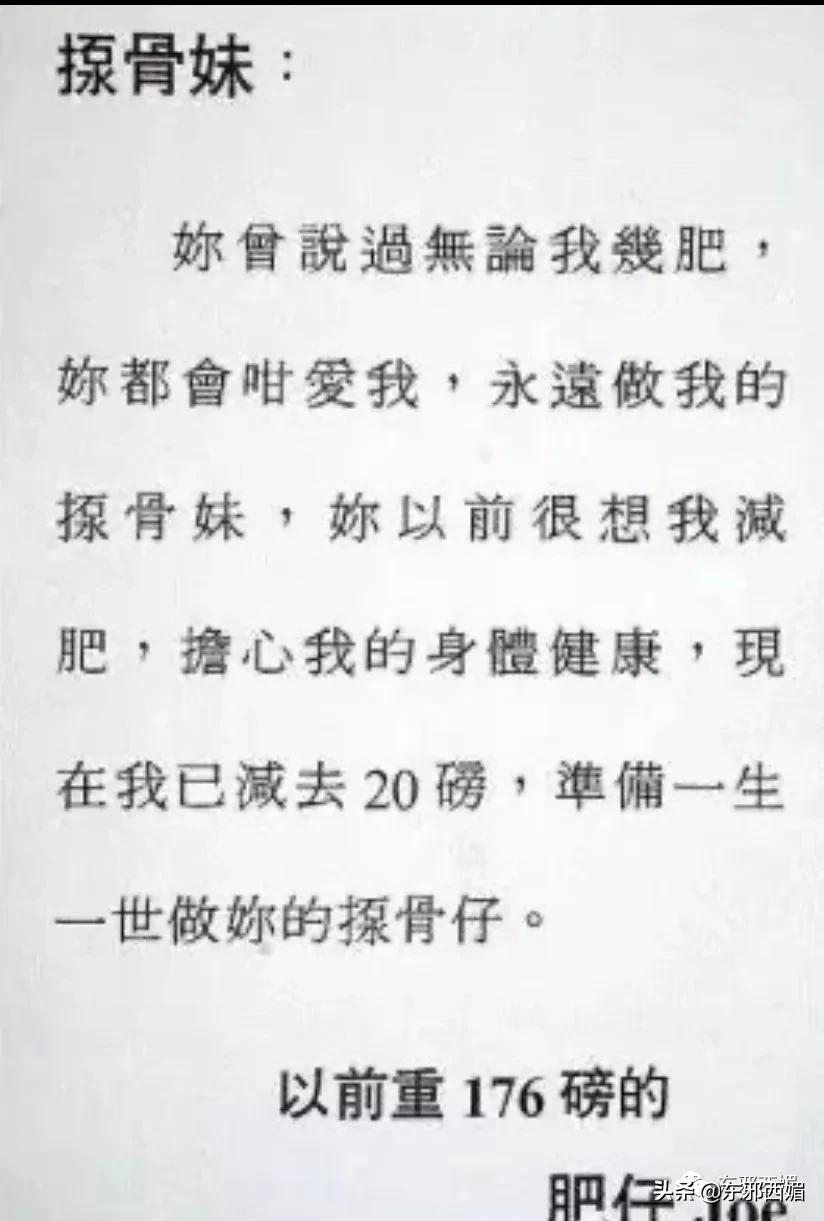 揼骨妹：
妳曾說過無論我幾肥，
妳都會咁愛我，永遠做我的
揼骨妹，妳以前很想我減
肥，擔心我的身體健康，現
在我已減去 20 磅，準備一生
一世做妳的揼骨仔。
以前重 176 磅的
肥仔 Joe
东邪西媚
头条 @东邪西媚